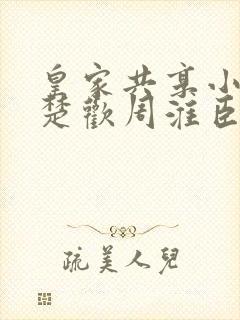 皇家共享小
楚歡周淮臣
疏美人兒